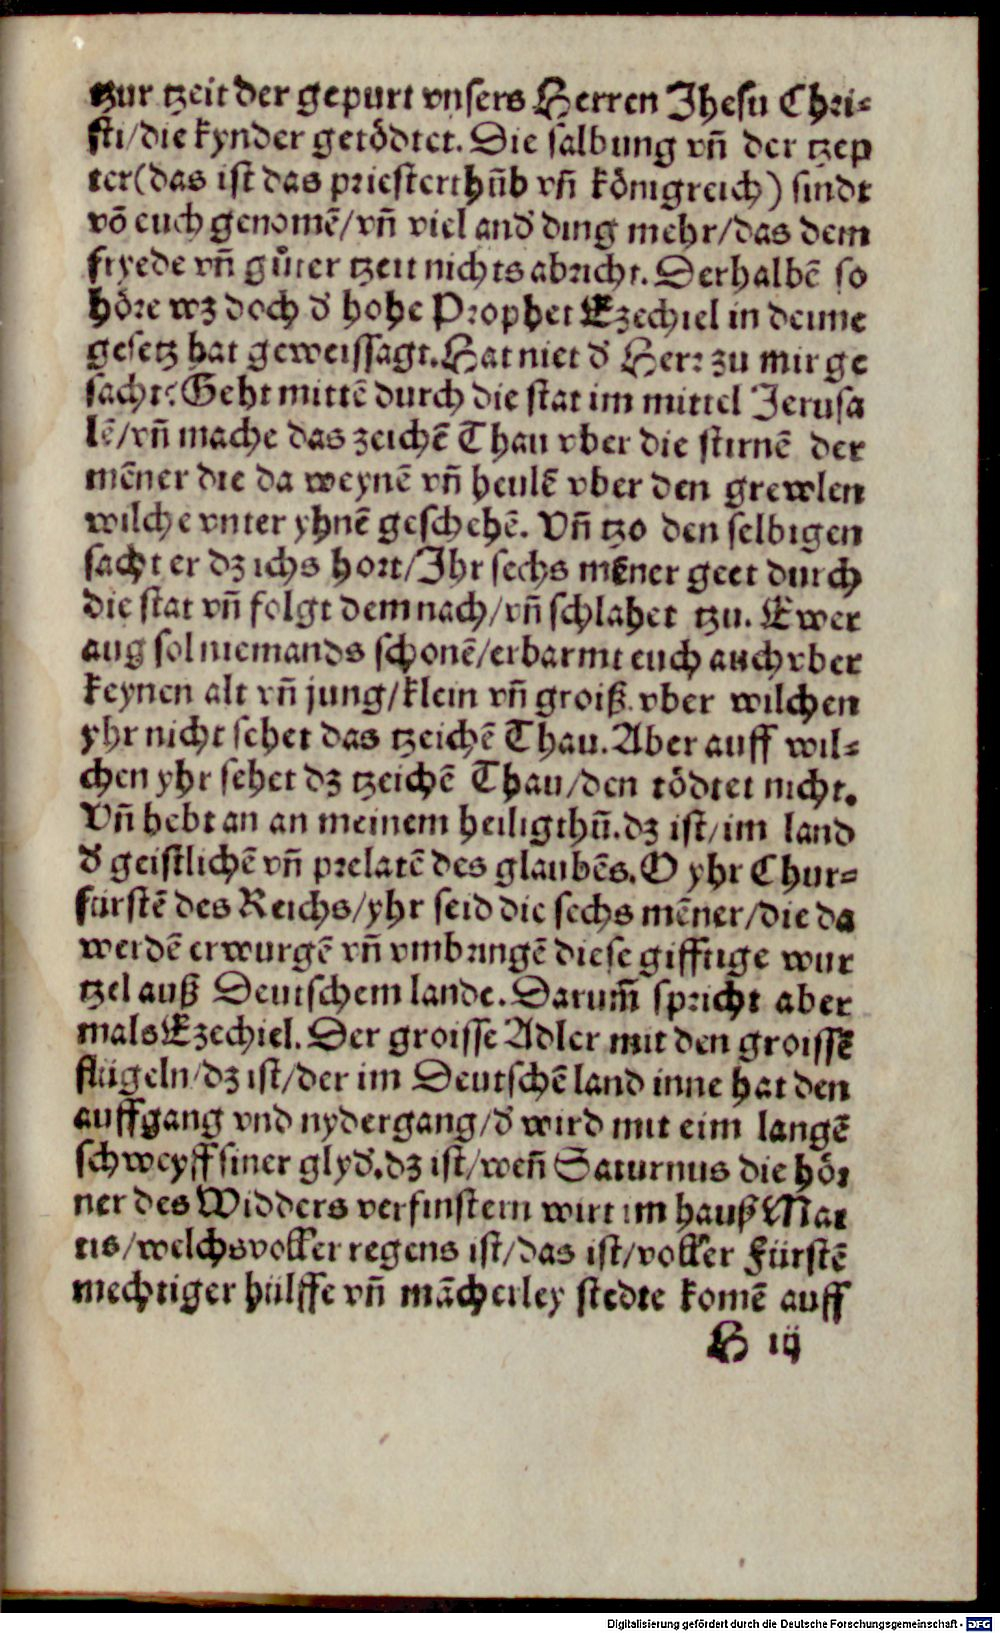 tzur tzeit der gepurt vnsers Herren Jhesu Chri⸗
sti/die kynder getödtet. Die salbung vn̄ der tzep
ter(das ist das priesterthūb vn̄ königreich) sindt
vō euch genomē/vn̄ viel and̕ ding mehr/das dem
fryede vn̄ gůter tzeit nichts abricht. Derhalbē so
höre wz doch d̕ hohe Prophet Ezechiel in deime
gesetz hat geweissagt. Hat niet d̕ Herr zu mir ge
sacht? Geht mittē durch die stat im mittel Jerusa
lē/vn̄ mache das zeichē Thau vber die stirnē der
mēner die da weynē vn̄ heulē vber den grewlen
wilche vnter yhnē geschehē. Vn̄ tzo den selbigen
sacht er dz ichs hort/Ihr sechs mēner geet durch
die stat vn̄ folgt dem nach/vn̄ schlahet tzu. Ewer
aug sol niemands schonē/erbarmt euch auch vber
keynen alt vn̄ jung/klein vn̄ groiß. vber wilchen
yhr nicht sehet das tzeichē Thau. Aber auff wil⸗
chen yhr sehet dz tzeichē Thau/den tödtet nicht.
Vn̄ hebt an an meinem heiligthū. dz ist/im land
d̕ geistlichē vn̄ prelatē des glaubēs. O yhr Chur⸗
fürstē des Reichs/yhr seid die sechs mēner/die da
werdē erwurgē vn̄ vmbringē diese gifftige wur
tzel auß Deutschem lande. Darum̄ spricht aber
mals Ezechiel. Der groisse Adler mit den groissē
flügeln/dz ist/der im Deutschē land inne hat den
auffgang vnd nydergang/d̕ wird mit eim langē
schweyff siner glyd̕. dz ist/wen̄ Saturnus die hör
ner des Widders verfinstern wirt im hauß Mar
tis/welchs voller regens ist/das ist/voller Fürstē
mechtiger hülffe vn̄ mācherley stedte komē auff
H iij
Digitalisierung gefördert durch die Deutsche Forschungsgemeinschaft - DFG